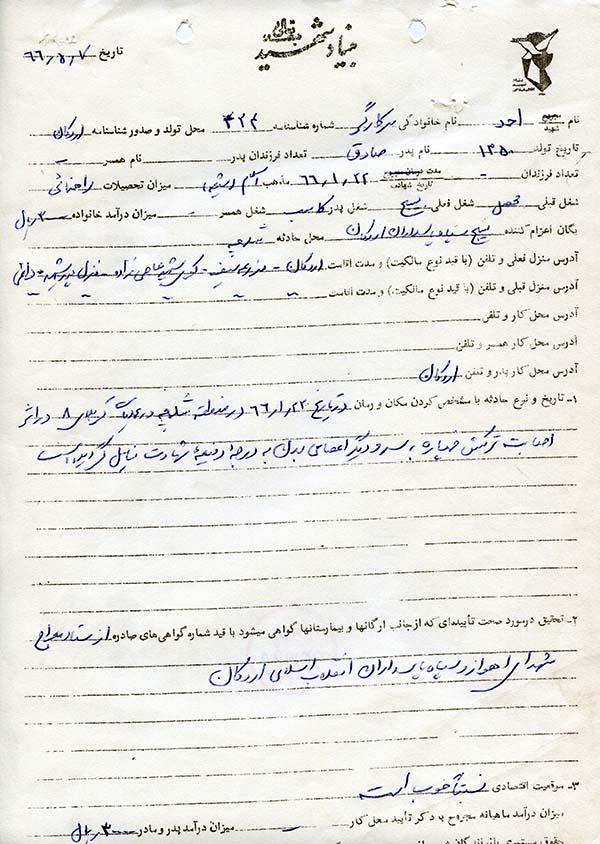 بسمه تعالی
بنیاد شهید
تاریخ ۶۶٫۵٫۷
نام مجروح شهید احد نام خانوادگی سرکارگر شماره شناسنامه ۴۲۴ محل تولد و صدور شناسنامه اردکان
تاریخ تولد ۱۳۵۰ نام پدر صادق تعداد فرزندان پدر نام همسر -
تعداد فرزندان - تاریخ شهادت ۶۶٫۱٫۲۲ مذهب اسلام (شیعه) میزان تحصیلات راهنمائی
شغل قبلی محصل شغل فعلی بسیج شغل پدر کاسب شغل همسر - میزان درآمد خانواده ریال
یگان اعزام کننده بسیج سپاه پاسداران اردکان محل حادثه شلمچه
آدرس منزل فعلی و تلفن (با قید نوع مالکیت) و مدت اقامت اردکان - کوی شهید منزل پدر شهید -
آدرس منزل قبلی و تلفن (با قید نوع مالکیت) و مدت اقامت
آدرس محل کار و تلفن
آدرس محل کار همسر و تلفن
آدرس محل کار پدر و تلفن اردکان
۱- تاریخ و نوع حادثه با مشخص کردن مکان و زمان در تاریخ ۶۶٫۱٫۲۲ در منطقه شلمچه در عملیات کربلای ۸ در اثر
اصابت ترکش خمپاره به سر و دیگر اعضای بدن به درجه رفیعه شهادت نایل گردیده است
۲- تحقیق درمورد صحت تأییدهای که از جانب ارگانها و بیمارستانها گواهی میشود با قید شماره گواهی های صادره از ستاد معراج
شهدای اهواز و سپاه پاسداران انقلاب اسلامی اردکان
۳- موقعیت اقتصادی نسبتاً خوب است
میزان درآمد ماهیانه مجروح با ذکر تأیید محل کار - میزان درآمد پدر و مادر ریال